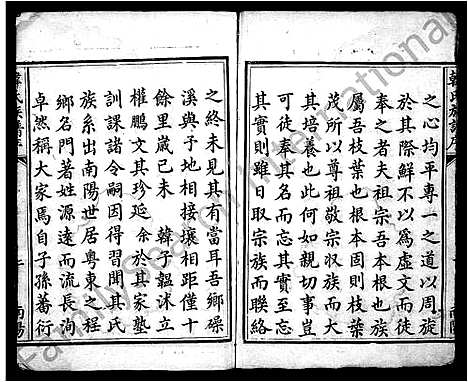 韓氏族譜序
之心均平專一之道以周旋
於其際鮮不以為虛文而徒
奉之者夫祖宗吾本也族
屬吾枝葉也根本固則枝葉
茂所以尊祖敬宗收族而大
其培養也此何如親切事豈
可徒奉其名而忘其實至忘
其實則雖日取宗族而聯絡
之終未見其有當耳吾鄉礤
溪與子地相接壤相距僅十
餘里歲已未 韓子韞述立
權鵬文其珍延 余於其家塾
訓課諸令嗣因得習聞其氏
族系出南陽世居粵東之程
鄉名門著姓源遠而流長洵
卓然稱大家焉自子孫蕃衍
韓氏族譜序
南陽